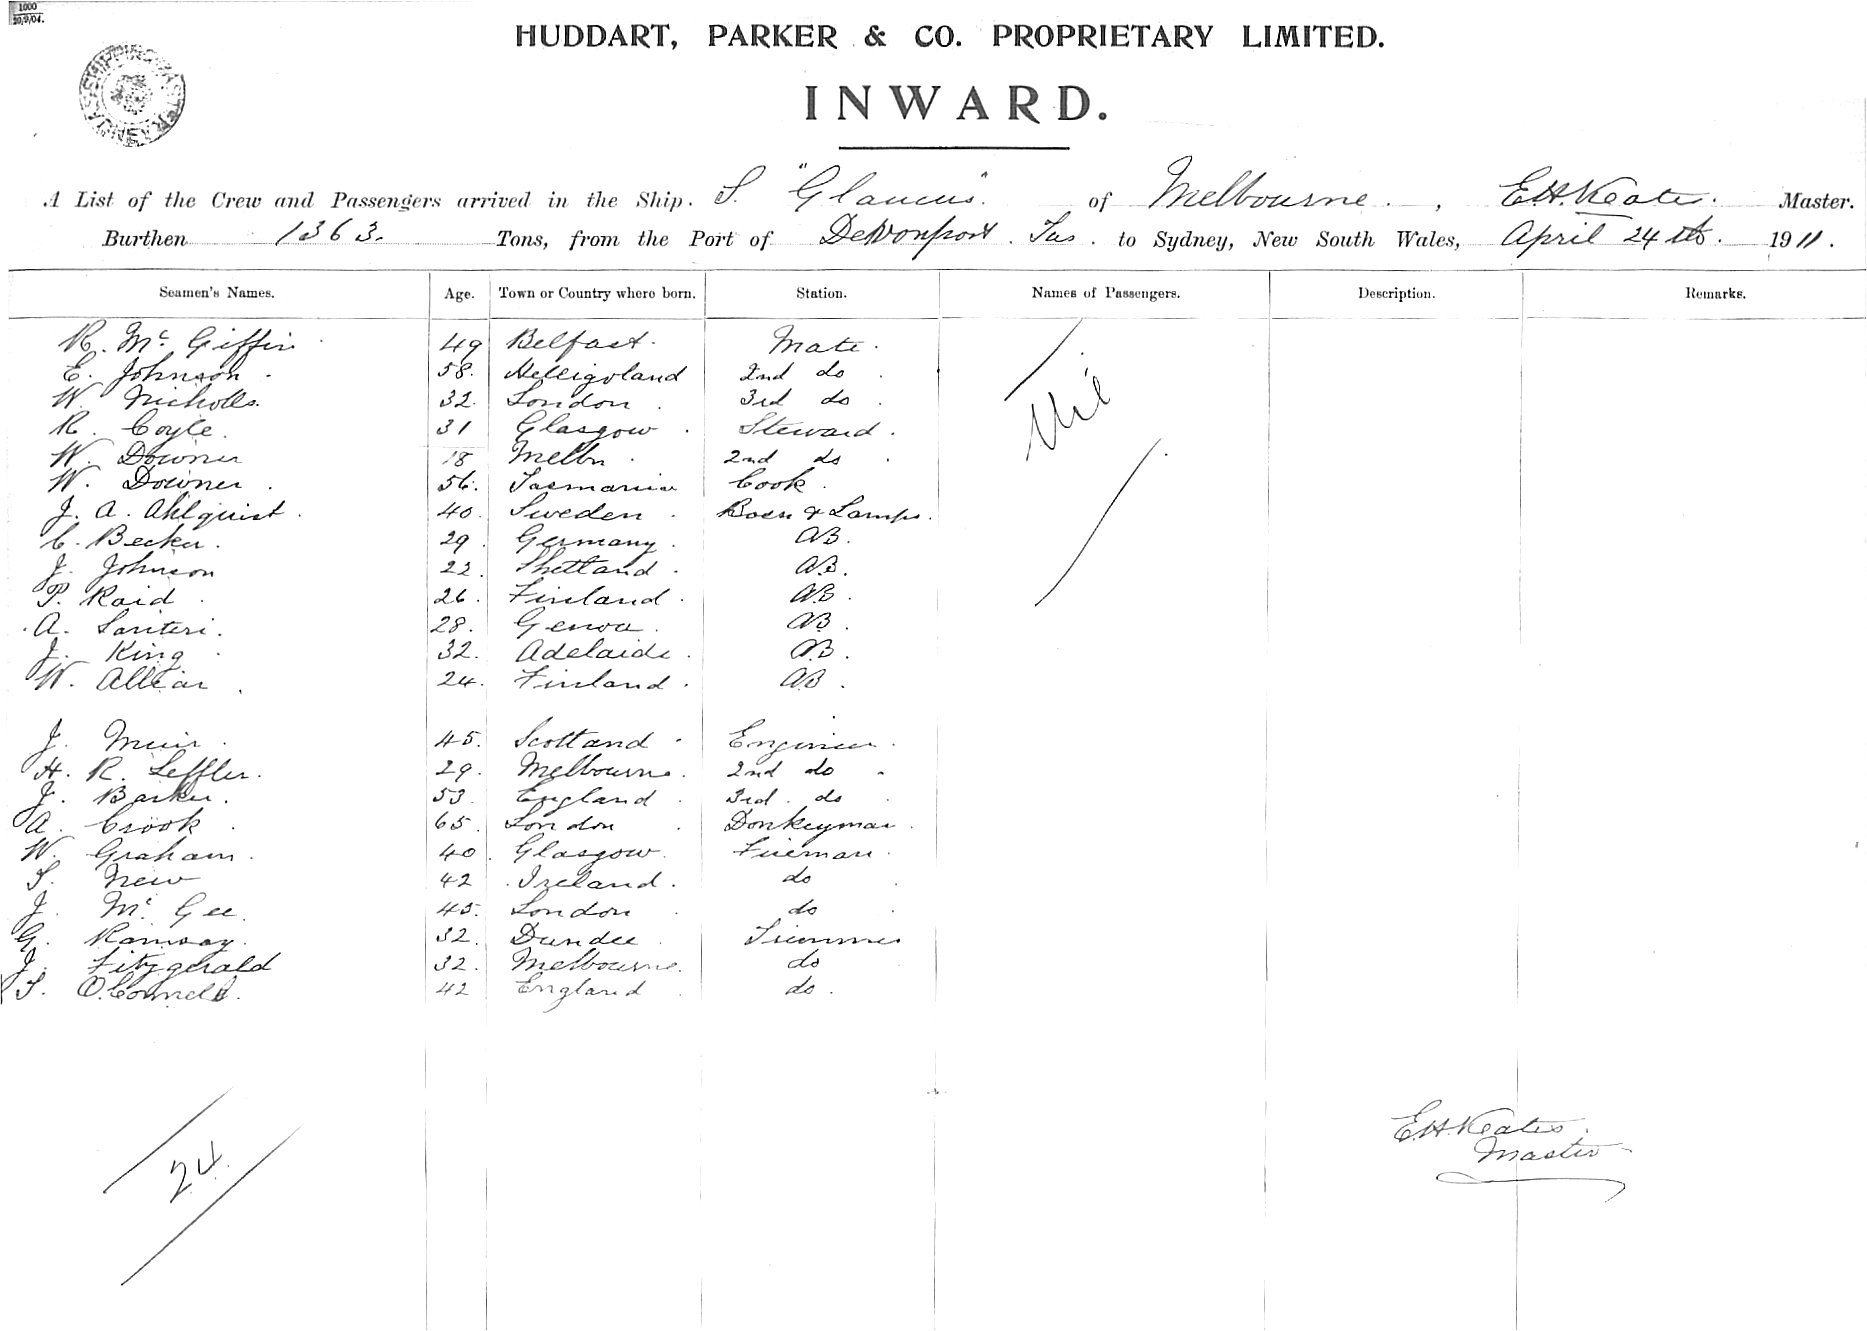 1000
20/9/04.
SHIPPING MASTER SYDNEY
HUDDART, PARKER & CO. PROPRIETARY LIMITED.
INWARD.
A List of the Crew and Passengers arrived in the Ship. S. "Glaucus" of Melbourne. , E.H. Keates. Master.
Burthen 1363. Tons, from the Port of Devonport. Tas. to Sydney, New South Wales, April 24th. 1911.
Seamen's Names. Age. Town or Country where born. Station. Names of Passengers. Description. Remarks.
R. Mc Giffin 49 Belfast. Mate. Nil
E. Johnson. 58. Helligoland 2nd do.
W. Nicholls. 32. London. 3rd do.
R. Coyle. 31 Glasgow. Steward.
W. Downer 18 Melbn. 2nd do.
W. Downer. 56. Tasmania Cook.
J. A. Ahlquist. 40. Sweden. Bosn & Lamps.
C. Becker. 29. Germany. AB.
J. Johnson 22. Shetland. AB.
P. Raid. 26. Finland. AB.
A. Santeri. 28. Genoa. AB.
J. King. 32. Adelaide. AB.
W. 24. Finland. AB.
J. Muir. 45. Scotland. Engineer.
H. R. Leffler. 29. Melbourne. 2nd do.
J. Barker. 53. England. 3rd. do.
A. Crook. 65. London. Donkeyman.
W. Graham. 40. Glasgow. Fireman.
S. New 42. Ireland. do.
J. Mc Gee. 45. London. do.
G. Ramsay. 32. Dundee. Trimmer
J. Fitzgerald 32. Melbourne. do
T. O'Connell. 42 England. do.
24.
E.H. Keates.
Master